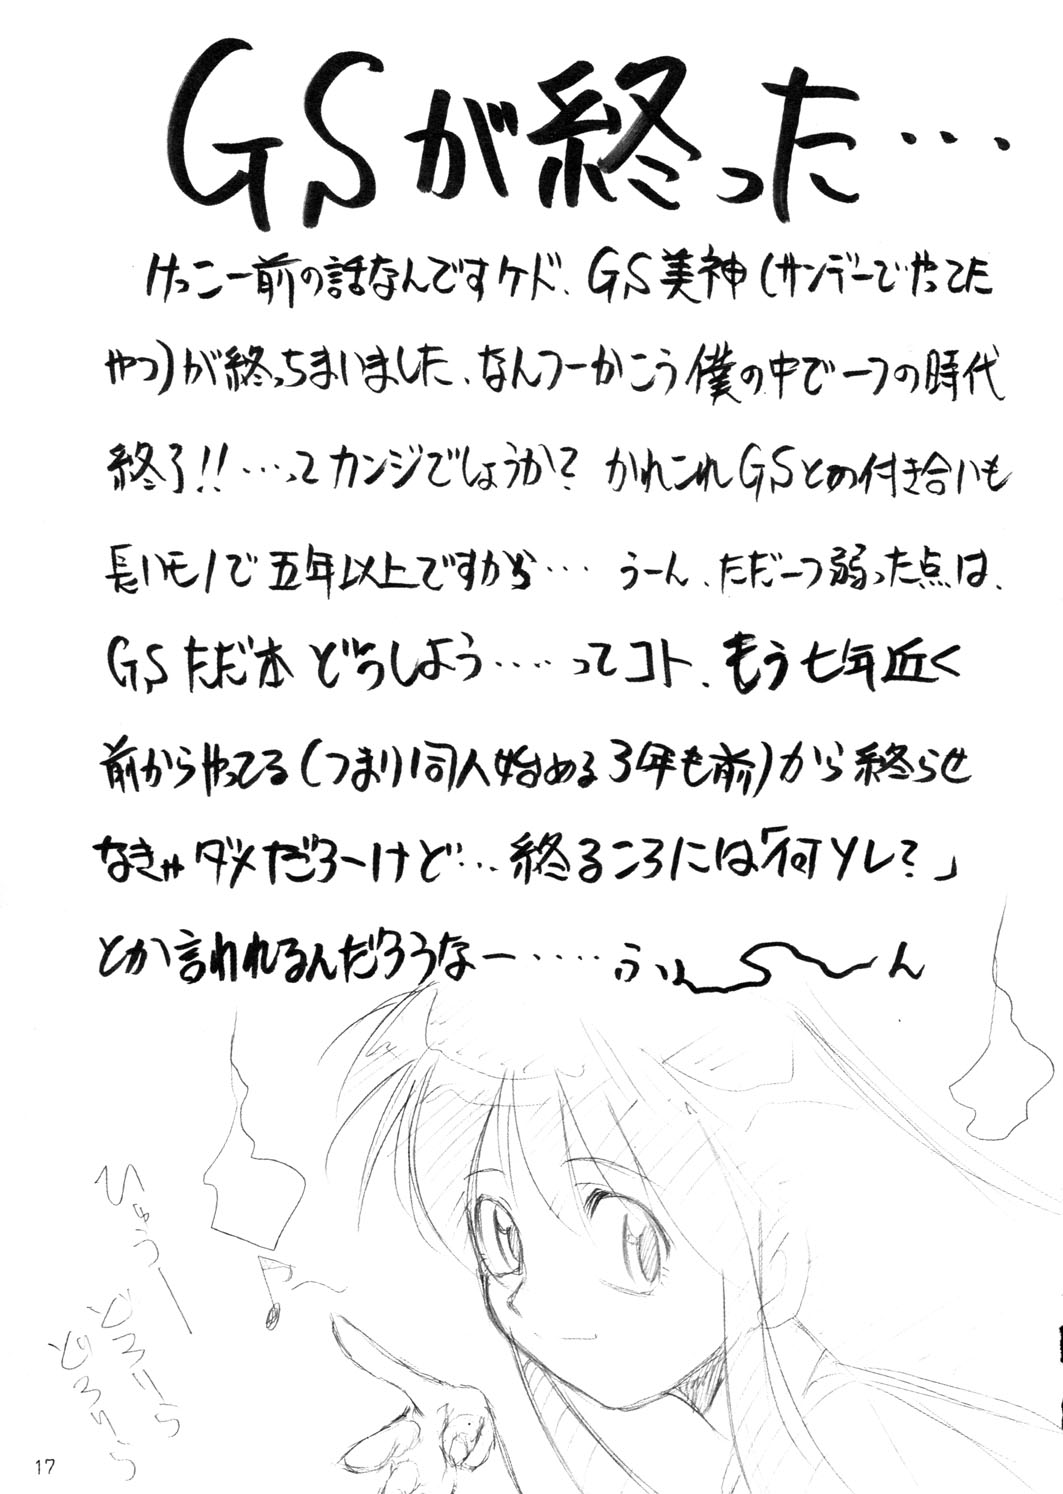 GSが終った…
けっこー前の話なんですケド、GS美神(サンデーでやってた
やつ)が終っちまいました、なんつーかこう僕の中で一つの時代
終了!!…ってカンジでしょうか? かれこれGSとの付き合いも
長いモノで五年以上ですから… うーん、ただ一つ弱った点は、
GSただ本どうしよう‥‥ってコト、もう七年近く
前からやってる(つまり同人始める3年も前)から終らせ
なきゃダメだろーけど…終るころには「何ソレ?」
とか言われるんだろうなー‥‥ふぃ〜〜ん
ひゅうー
どろりら
どろりら
17